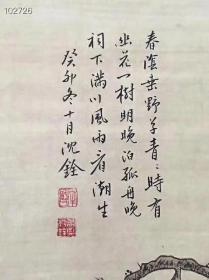 102726
春陰垂野草青々時有
幽花一樹明晚泊孤舟晚
祠下滿川風雨看潮生
癸卯冬十月沈銓